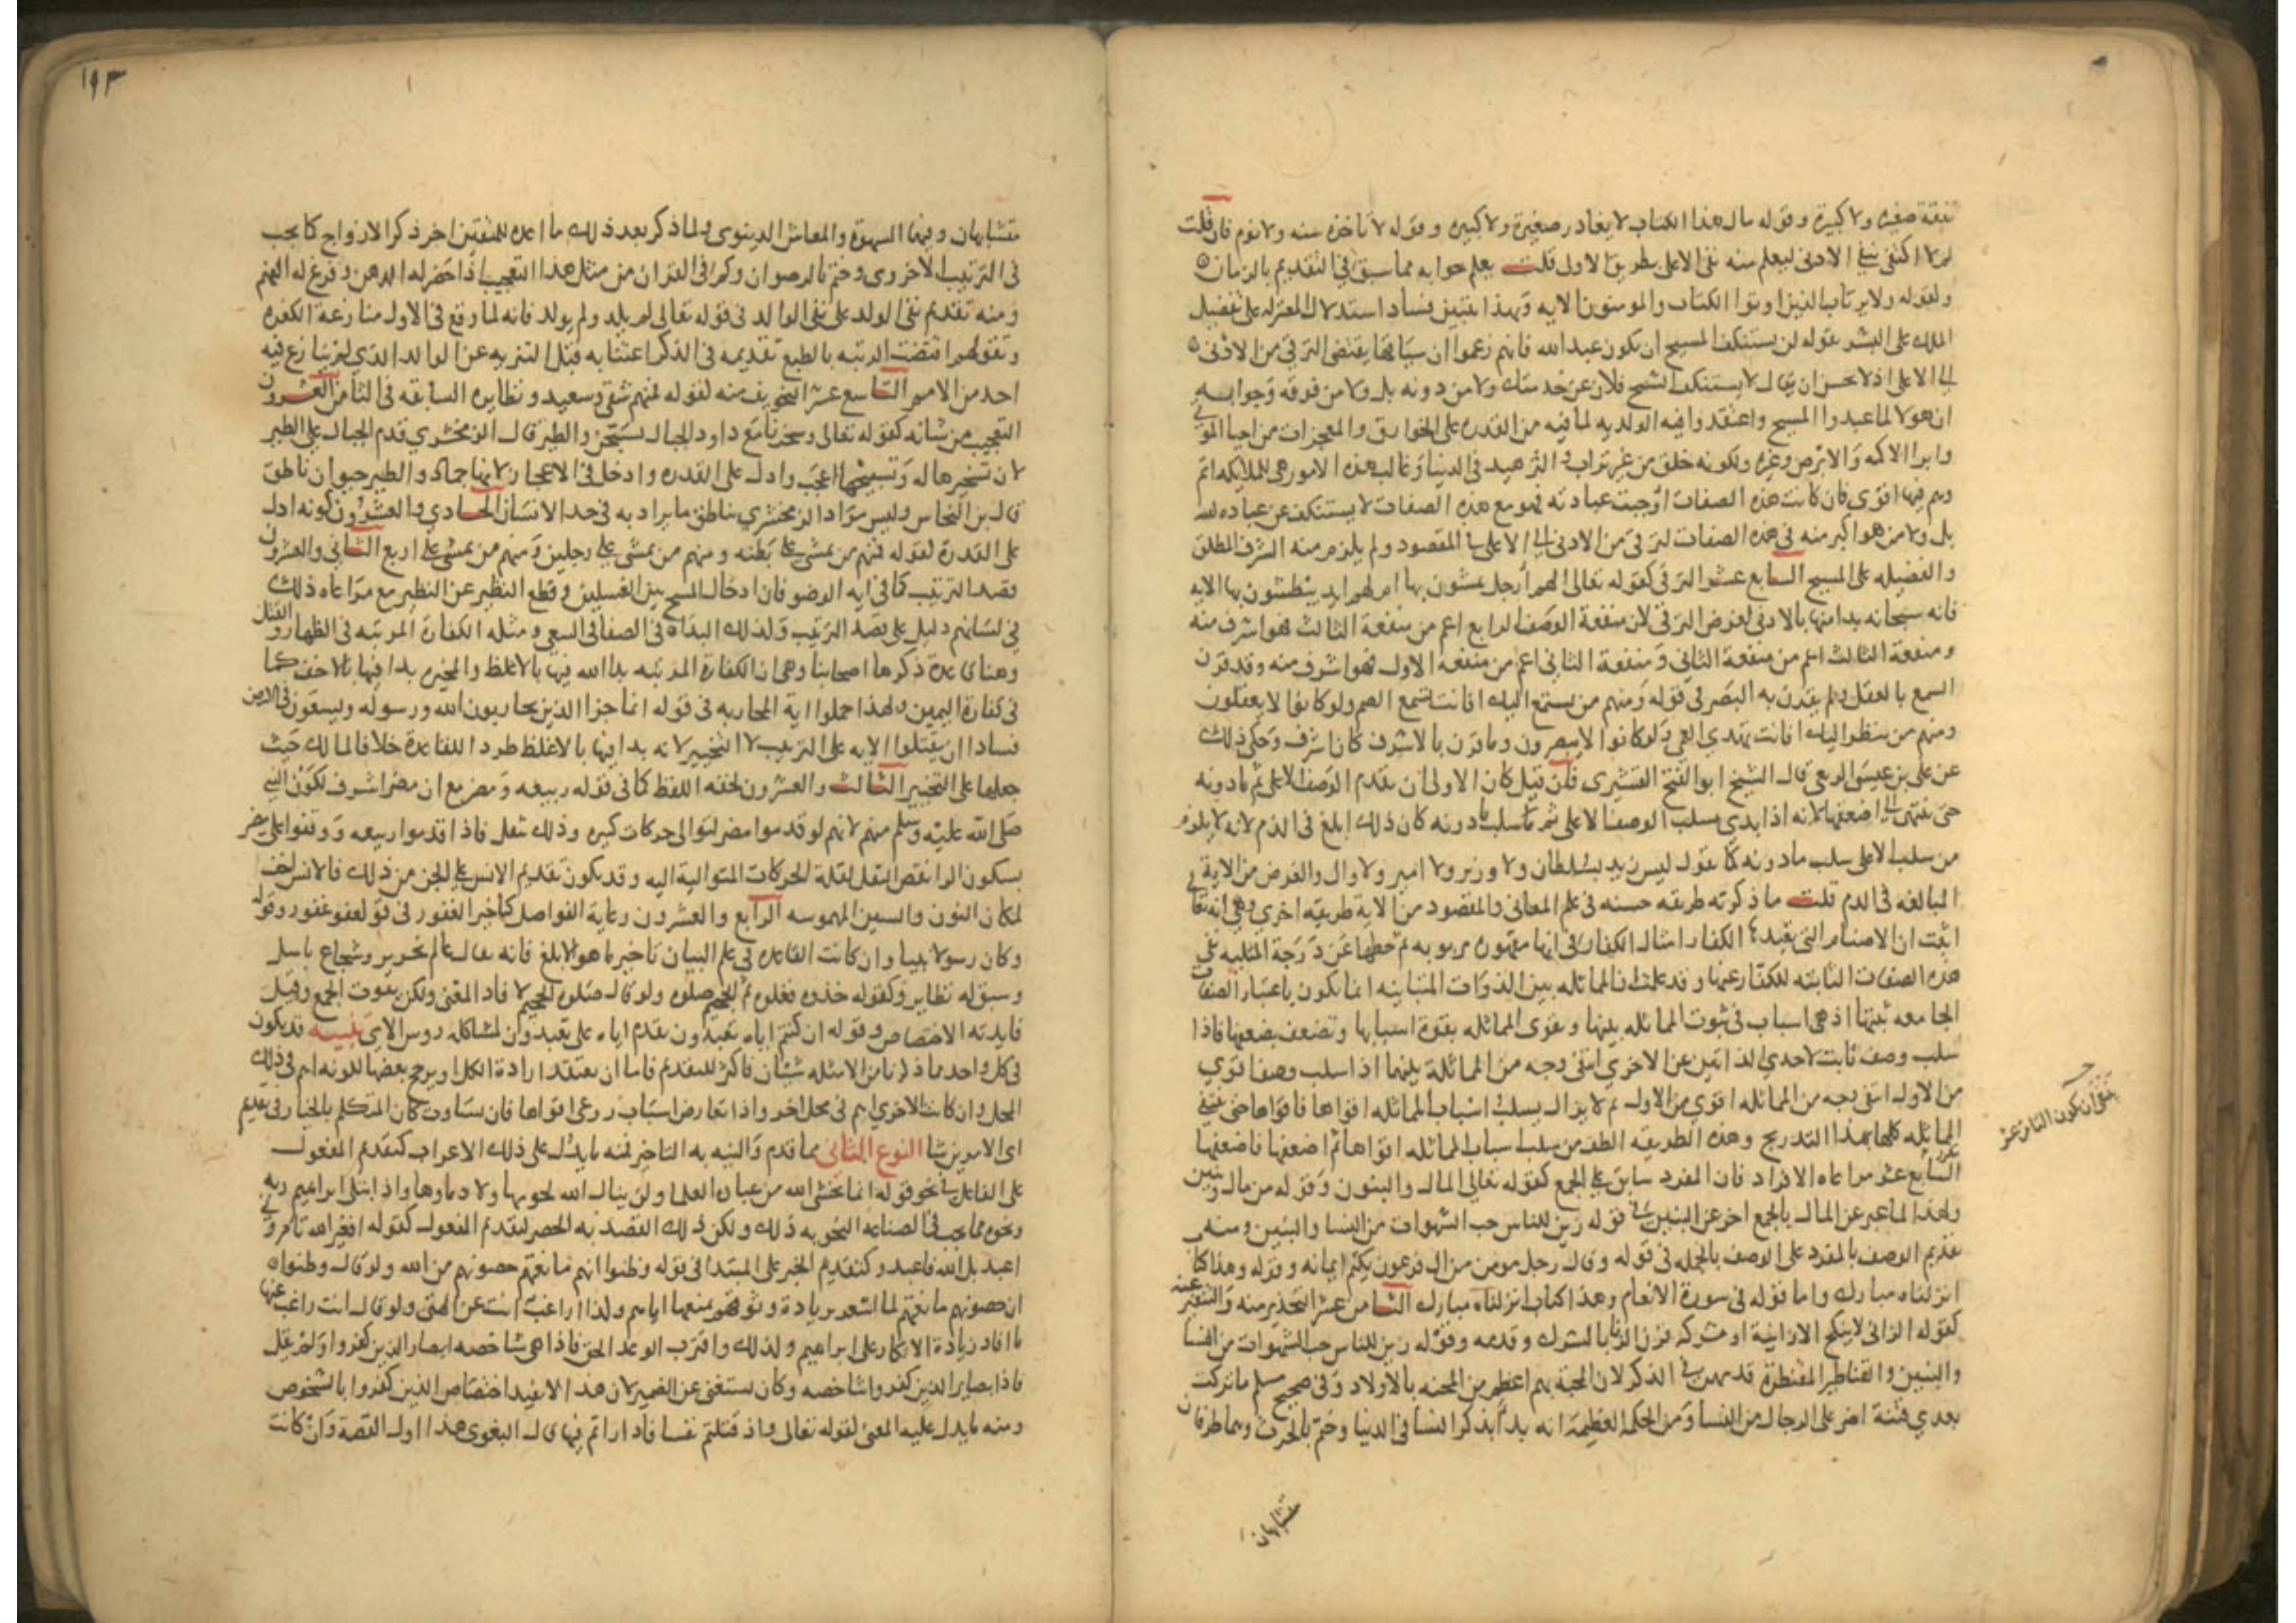 نفقة صغيرة ولا كبيرة وقوله مال هذا الكتاب لا يغادر صغيرة ولا كبيره وقوله لا تاخذه سنه ولا نوم فان قلت
لم لا اكتفى بنفي الادنى ليعلم منه نفى الاعلى بطريق الاولى قلت يعلم جوابه مما سبق في التقديم بالزمان
ولقوله ولا يرتاب الذين اوتوا الكتاب والمومنون الايه وبهذا يتبين فساد استدلال المعتزله على تفضيل
الملك على البشر بقوله لن يستنكف المسيح ان يكون عبد الله فانهم زعموا ان سياقها يقتضى الترقى من الادنى
الى الاعلى اذ لا يحسن ان يقال لا يستنكف الشيخ فلان عن خدمتك ولا من دونه بل ولا من فوقه وجوابه
ان هولا لما عبدوا المسيح واعتقدوا فيه الولديه لما فيه من القدره على الخوارق والمعجزات من احيا الموتى
وابرا الاكمه والابرص وغيره ولكونه خلق من غير تراب والتزهيد فى الدنيا وغالب هذه الامور هى للملايكه اتم
وهم فيها اقوى فان كانت هذه الصفات اوجبت عبادته فهو مع هذه الصفات لا يستنكف عن عباده لله
بل ولا من هو اكبر منه فى هذه الصفات لترقى من الادنى الى الاعلى فى المقصود ولم يلزم منه الشرف المطلق
والفضيله على المسيح السابع عشر الترقى كقوله تعالى الهم ارجل يمشون بها ام لهم ايد يبطشون بها الايه
فانه سبحانه بدا منها بالادنى لغرض الترقى لان منفعة الوصف الرابع اعم من منفعة الثالث فهو اشرف منه
ومنفعة الثالث اعم من منفعة الثاني ومنفعة الثانى اعم من منفعة الاول فهو اشرف منه وقد قرن
السمع بالعقل ولم يقرن به البصر فى قوله ومنهم من يستمع اليك افانت تسمع الصم ولو كانوا لا يعقلون
ومنهم من ينظر اليك افانت تهدي العمي ولو كانوا لا يبصرون وما قرن بالاشرف كان اشرف وحكى ذلك
عن على بن عيسى الربعى قال الشيخ ابو الفتح القشيرى فان قيل كان الاولى ان يقدم الوصف الاعلى ثم ما دونه
حتى ينتهى الى اضعفها لانه اذا بدى بسلب الوصف الاعلى ثم بسلب ما دونه كان ذلك ابلغ فى الذم لانه لا يلزم
من سلب الاعلى سلب ما دونه كما تقول ليس زيد بسلطان ولا وزير ولا امير ولا وال والغرض من الاية
المبالغه فى الذم قلت ما ذكرته طريقه حسنه فى علم المعانى والمقصود من الاية طريقه اخري وهى انه تعالى
اثبت ان الاصنام التى الكفار امثال الكفار فى انها مقهورة مربوبه ثم حطها عن درجة المثليه بنفى
هذه الصفات الثابته للكفار عنها وقد علمت ان المماثله بين الذوات المتباينه انما تكون باعتبار الصفات
الجامعه بينها اذ هى اسباب فى ثبوت المماثله بينها وتقوى المماثله بقوة اسبابها وتضعف بضعفها فاذا
سلب وصف ثابت لاحدي الذاتين عن الاخري انتفى وجه من المماثلة بينهما اذا سلب وصف اقوي
من الاول انتفى وجه من المماثله اقوي من الاول ثم لا يزال يسلب اسباب المماثله اقواها فاقواها حتى تنتفى
المماثله كلها بهذا التدريج وهذه الطريقه الطف من سلب اسباب المماثله اقواها ثم اضعفها فاضعفها
السابع عشر مراعاه الافراد فان المفرد سابق على الجمع كقوله تعالى المال والبنون وقوله من مال وبنين
ولهذا لما عبر عن المال بالجمع اخر عن البنين فى قوله زين للناس حب الشهوات من النسا والبنين ومنه
تقديم الوصف بالمفرد على الوصف بالجمله فى قوله وقال رجل مومن من ال فرعون يكتم ايمانه وقوله وهذا كتاب
انزلناه مبارك واما قوله فى سورة الانعام وهذا كتاب انزلناه مبارك الثامن عشر التحذير منه والتنفير عنه
كقوله الزانى لا ينكح الا زانية او مشركه قرن الزنا بالشرك وقدمه وقوله زين للناس حب الشهوات من النسا
والبنين والقناطير المقنطرة قدمهن فى الذكر لان المحنة بهم اعظم من المحنه بالاولاد وفى صحيح مسلم ما تركت
بعدي فتنة اضر على الرجال من النسا ومن الحكمة العظيمة انه بدا بذكر النسا فى الدنيا وختم بالحرث وهما طرفان
متشابهان
ان يكون الثامن عشر
١٩٣
متشابهان وفيها الشهوة والمعاش الدنيوى ولما ذكر بعد ذلك ما اعده للمتقين اخر ذكر الازواج كما يجب
فى الترتيب الاخروى وختم بالرضوان وكم فى القران من مثل هذا التعجيب اذا حضر له الذهن وفرغ له الفهم
ومنه تقديم نفى الولد على نفى الوالد فى قوله تعالى لم يلد ولم يولد فانه لما وقع فى الاول منازعة الكفره
وتقولهم اقتضت الرتبه بالطبع تقديمه فى الذكر اعتنا به قبل التنزيه عن الوالد الذي لم ينازع فيه
احد من الامم التاسع عشر التخويف منه لقوله فمنهم شقى وسعيد ونظايره السابقه فى الثامن العشرون
التعجيب من شانه كقوله تعالى وسخرنا مع داود الجبال يسبحن والطير قال الزمخشري قدم الجبال على الطير
لان تسخيرها له وتسبيحها اعجب وادل على القدره وادخل فى الاعجاز لانها جماد والطير حيوان ناطق
قال بن النحاس وليس مراد الزمخشري بناطق ما يراد به فى حد الانسان الحادي والعشرون كونه ادل
على القدرة لقوله فمنهم من يمشى على بطنه ومنهم من يمشى على رجلين ومنهم من يمشى على اربع الثانى والعشرون
قصد الترتيب كما فى ايه الوضو فان ادخال المسح بين الغسلين وقطع النظير عن النظير مع مراعاه ذلك
فى لسانهم دليل على قصد الترتيب ولذلك البداة فى الصفا فى السعى ومثله الكفارة المرتبه فى الظهار والقتل
وهنا قاعدة ذكرها اصحابنا وهى ان الكفارة المرتبه بدا الله فيها بالاغلظ والمخيره بدا فيها بالاخف كما
فى كفارة اليمين ولهذا حملوا اية المحاربه فى قوله انما جزا الذين يحاربون الله ورسوله ويسعون فى الارض
فسادا ان يقتلوا الايه على الترتيب لا التخيير لانه بدا فيها بالاغلظ طردا للقاعدة خلافا لمالك حيث
جعلها على التخيير الثالث والعشرون لخفه اللفظ كما فى قوله ربيعه ومضر مع ان مضر اشرف لكون النبى
صلى الله عليه وسلم منهم لانهم لو قدموا مضر لتوالى حركات كثيره وذلك ثقل فاذا قدموا ربيعه ووقفوا على مضر
بسكون الرا نقص الثقل لقلة الحركات المتوالية اليه وقد يكون تقديم الانس على الجن من ذلك فالانس اخف
لمكان النون والسين المهموسه الرابع والعشرون رعاية الفواصل كتاخير الغفور فى قوله لعفو غفور وقوله
وكان رسولا نبيا وان كانت القاعده فى علم البيان تاخير ما هو الابلغ فانه يقال عالم نحرير وشجاع باسل
وسبق له نظاير وكقوله خذوه فغلوه ثم الجحيم صلوه ولو قال صلوه الجحيم لافاد المعنى ولكن يفوت الجمع وقيل
فايدته الاختصاص وقوله ان كنتم اياه تعبدون بقدم اياه على تعبدون لمشاكله روس الاي تنبيه قد يكون
فى كل واحد مما ذكرنا من الامثله شيئان فاكثر للتقديم فاما ان يعتقد ارادة الكل او يرجح بعضها لكونه اهم فى ذلك
المحل وان كانت الاخري اهم فى محل اخر واذا تعارض اسباب روعى اقواها فان تساوت كان المتكلم بالخيار فى تقديم
اى الامرين شا النوع الثانى مما قدم والنيه به التاخير فمنه ما يدل على ذلك الاعراب كتقديم المفعول
على الفاعل فى نحو قوله انما يخشى الله من عباده العلما ولن ينال الله لحومها ولا دماوها واذ ابتلى ابراهيم ربه
ونحوه مما يجب فى الصناعه النحويه ذلك ولكن ذلك القصد به الحصر لتقديم المفعول كقوله افغير الله تامرونى
اعبد بل الله فاعبد وكتقديم الخبر على المبتدا فى قوله وظنوا انهم مانعتهم حصونهم من الله ولو قال وظنوا
ان حصونهم مانعتهم لما اشعر بزيادة وثوقهم بمنعها اياهم ولذا اراغب انت عن الهتى ولو قال انت راغب عنها
ما افاد زيادة الانكار على ابراهيم ولذلك واقترب الوعد الحق فاذا هى شاخصه ابصار الذين كفروا ولم يقل
فاذا ابصار الذين كفروا شاخصه وكان يستغنى عن الضمير لان هذا لا يفيد اختصاص الذين كفروا بالشخوص
ومنه ما يدل عليه المعنى لقوله تعالى واذ قتلتم نفسا فادارتم فيها قال البغوى هذا اول القصة وان كانت